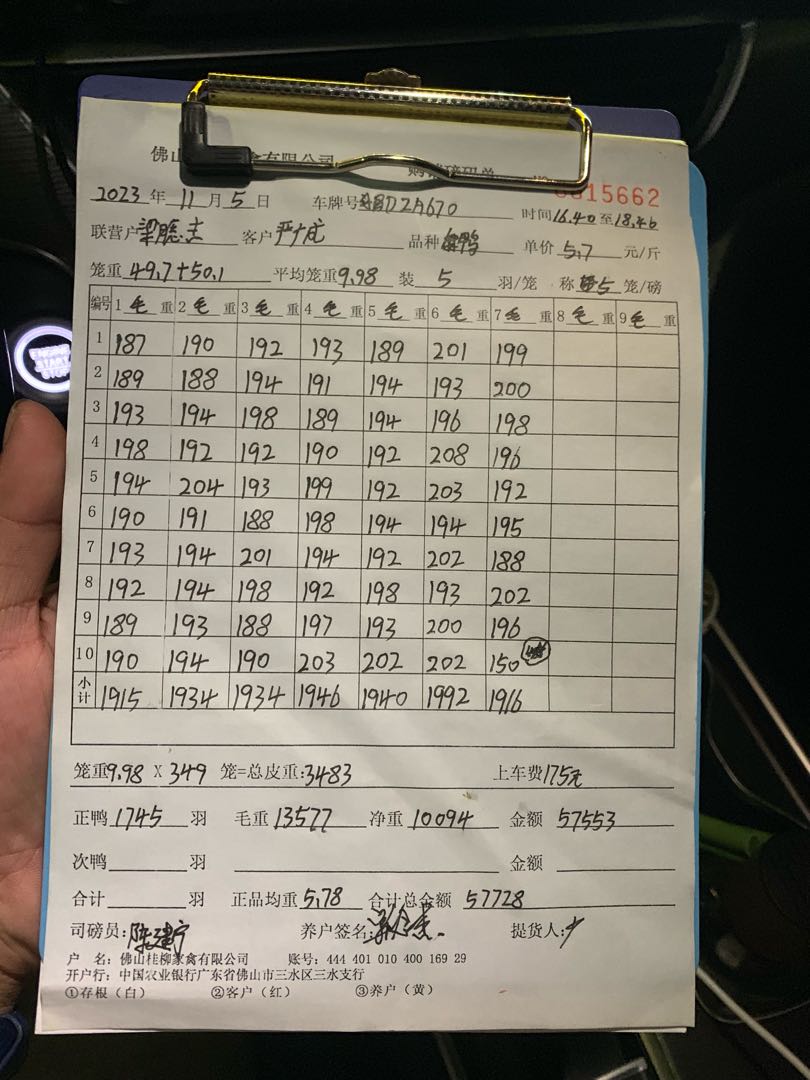 佛山 家禽有限公司 购销磅码单 №
0015662
2023 年 11 月 5 日 车牌号 DZA670 时间16.40至18.46
联营户 梁聪 客户 严 品种 鸭 单价 5.7 元/斤
笼重 49.7+50.1 平均笼重9.98 装 5 羽/笼 称 5 笼/磅
编号 1 毛 重 2 毛 重 3 毛 重 4 毛 重 5 毛 重 6 毛 重 7 毛 重 8 毛 重 9 毛 重
1 187 190 192 193 189 201 199
2 189 188 194 191 194 193 200
3 193 194 198 189 194 196 198
4 198 192 192 190 192 208 196
5 194 204 193 199 192 203 192
6 190 191 188 198 194 194 195
7 193 194 201 194 192 202 188
8 192 194 198 192 198 193 202
9 189 193 188 197 193 200 196
10 190 194 190 203 202 202 150
小计 1915 1934 1934 1946 1940 1992 1916
笼重9.98 X 349 笼=总皮重:3483 上车费175元
正鸭 1745 羽 毛重 13577 净重 10094 金额 57553
次鸭 羽 金额
合计 羽 正品均重 5.78 合计总金额 57728
司磅员:陈建宁 养户签名: 提货人:
户 名: 佛山桂柳家禽有限公司 账号: 444 401 010 400 169 29
开户行: 中国农业银行广东省佛山市三水区三水支行
①存根（白） ②客户（红） ③养户（黄）
ENGINE
START
STOP